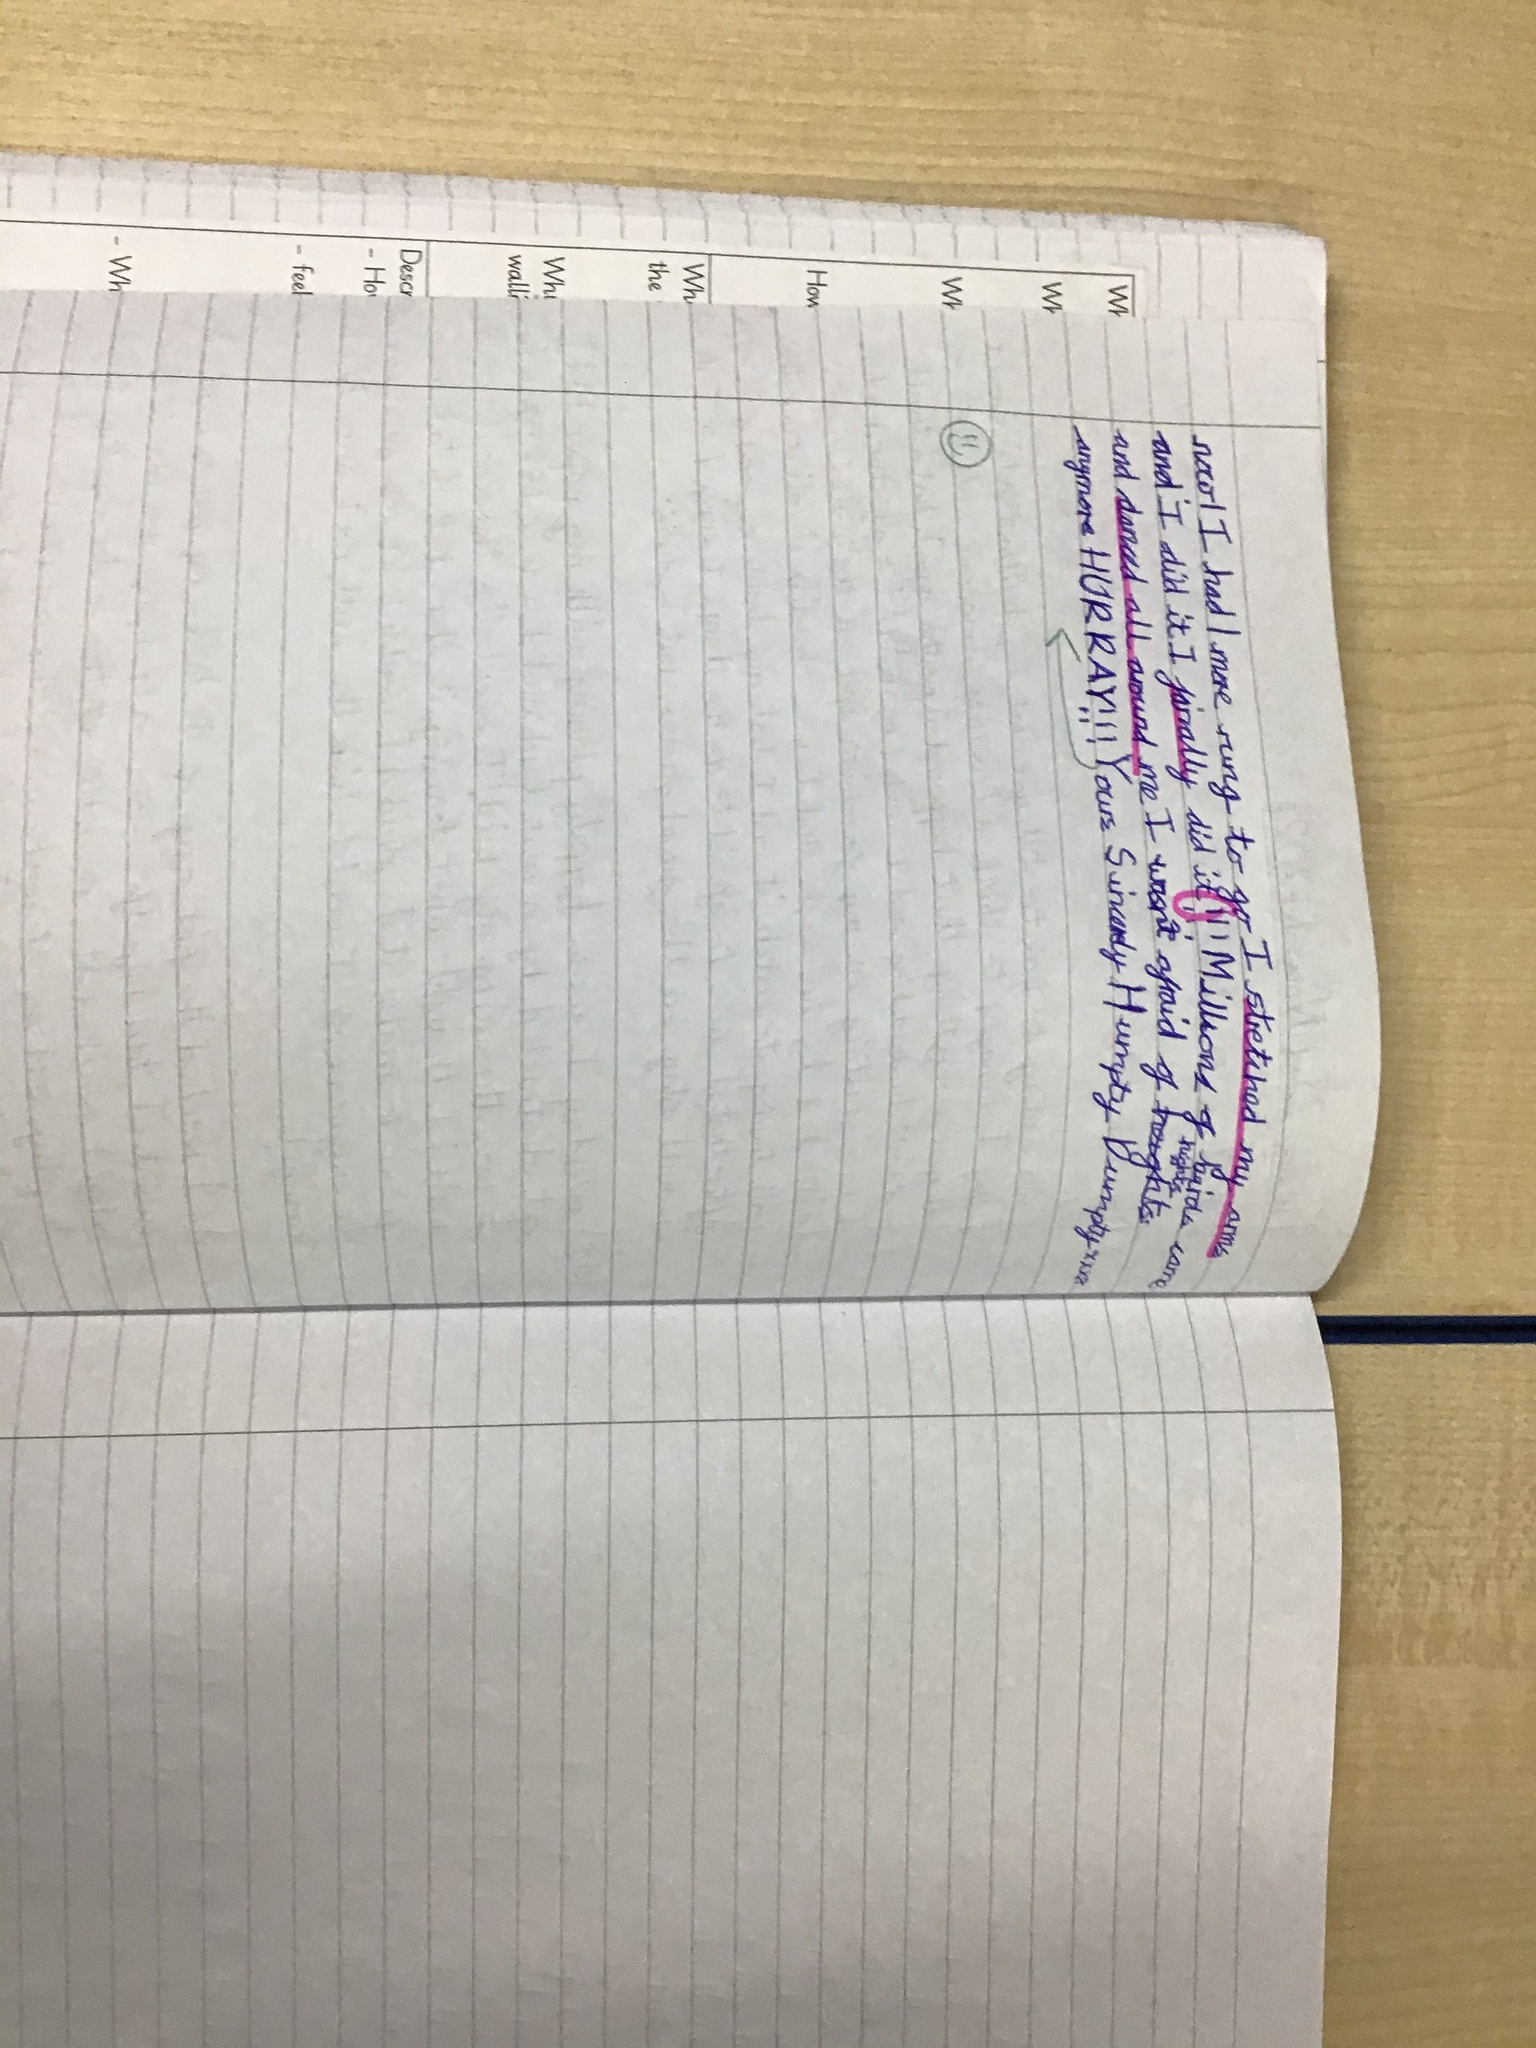 now! I had 1 more rung to go I stretched my arms
and I did it I finally did it!!! Millions of birds came
and danced all around me I wasn't afraid of heights
hights
anymore HURRAY!!! Yours Sincerely Humpty Dumpty xxx
Wh
Wh
Wh
How
Wh
the
Why
walli
Descr
- Ho
- feel
- Wh